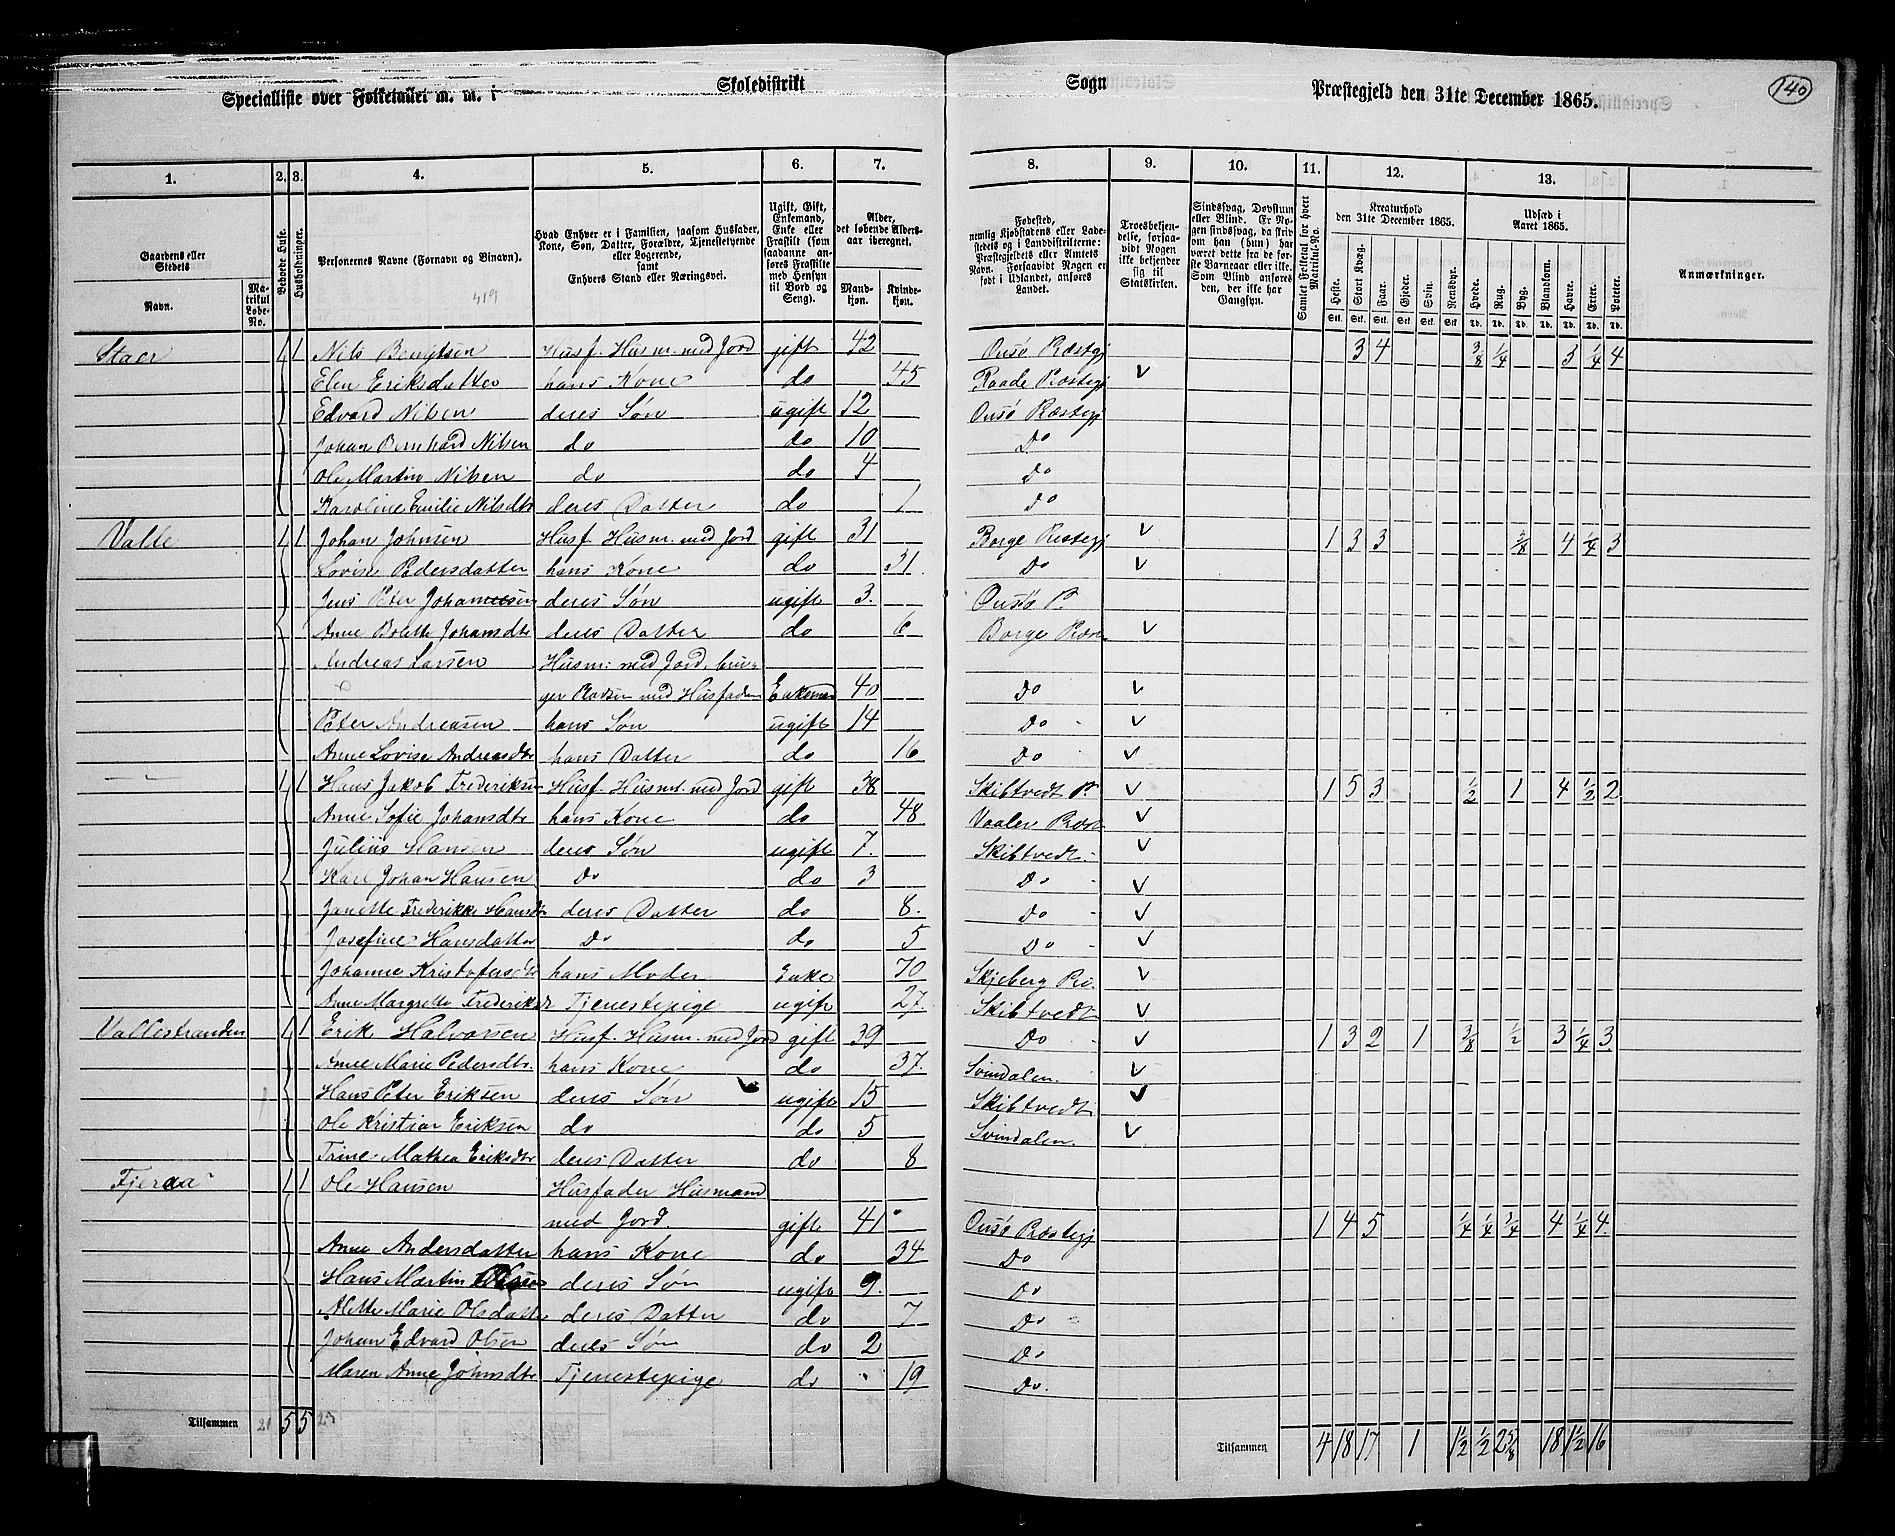 Specialliste over Folketallet m. m. i Skoledistrikt Sogn Præstegjeld den 31te December 1865. 140
1. 2. 3. 4. 5. 6. 7. 8. 9. 10. 11. 12. 13.
Gaardens eller Stedets
Navn.
Matrikul Løbe-No.
Beboede Huse.
Husholdninger.
Personernes Navne (Fornavn og Binavn).
419
Hvad Enhver er i Familien, saasom Husfader, Kone, Søn, Datter, Forældre, Tjenestetyende eller Logerende,
samt
Enhvers Stand eller Næringsvei.
Ugift, Gift, Enkemand, Enke eller Fraskilt (som saadanne anføres Fraskilte med Hensyn til Bord og Seng).
Alder, det løbende Aldersaar iberegnet.
Mandkjøn. Kvindekjøn.
Fødested, nemlig Kjøbstadens eller Ladestedets og i Landdistrikterne: Præstegjeldets eller Amtets Navn. Forsaavidt Nogen er født i Udlandet, anføres Landet.
Troesbekjendelse, forsaavidt Nogen ikke bekjender sig til Statskirken.
Sindssvag, Døvstum eller Blind. Er Nogen sindssvag, da skriv om han (hun) har været dette fra de første Barneaar eller ikke. Som Blind anføres den, der ikke har Gangsyn.
Samlet Folketal for hvert Matrikul-No.
Kreaturhold den 31te December 1865.
Heste. Stort Kvæg. Faar. Gjeder. Svin. Rensdyr.
Udsæd i Aaret 1865.
Hvede. Rug. Byg. Blandkorn. Havre. Erter. Poteter.
Anmærkninger.
Staer 1 1 Nils Bengtsen Husf. Husm. med Jord gift 42 Onsø Præstgj 3 4 3/8 1/4 3 1/4 4
Elen Eriksdatter hans Kone do 45 Raade Præstegj v
Edvard Nilsen deres Søn ugift 12 Onsø Præstegj
Johan Bernhard Nilsen do do 10 Do
Ole Martin Nilsen do do 4 Do
Karoline Emilie Nilsdtr deres Datter do 1 Do
Valle 1 1 Johan Johnsen Husf. Husm. med Jord gift 31 Borge Præstegj v 1 3 3 3/8 4 1/4 3
Lovise Pedersdatter hans Kone do 31 Do v
Jens Peter Johannessen deres Søn ugift 3. Onsø P.
Anne Bolette Johansdtr deres Datter do 6 Borge Præst v
Andreas Larsen Husm: med Jord. bru-
ger Pladsen med Husfaderen Enkemand 40 Do v
Peter Andreasen hans Søn ugift 14 Do v
Anne Lovise Andreasdtr hans Datter do 16 Do v
— 1 1 Hans Jakob Frederiksen Husf. Husm. med Jord gift 38 Skibtvedt P. v 1 5 3 1/2 1 4 1/2 2
Anne Sofie Johansdtr hans Kone do 48 Vaaler Præst v
Julius Hansen deres Søn ugift 7. Skibtvedt v
Karl Johan Hansen Do do 3 Do v
Janette Frederikke Hansdtr deres Datter do 8. Do v
Josefine Hansdatter Do do 5 Do v
Johanne Kristofersdtr hans Moder Enke 70 Skjeberg Pr. v
Anne Margrette Frederiksdr Tjenestepige ugift 27. Skibtvedt v
Vallestranden 1 1 Erik Halvorsen Husf. Husm. med Jord gift 39 Do v 1 3 2 1 3/8 1/2 3 1/4 3
Anne Marie Pedersdtr. hans Kone do 37. Svindalen. v
Hans Peter Eriksen deres Søn ugift 15 Skibtvedt v
Ole Kristian Eriksen do do 5 Svindalen. v
Trine Mathea Eriksdtr deres Datter do 8
Fjeraa 1 1 Ole Hansen Husfader Husmand
med Jord. gift 41 Onsø Præstegj 1 4 5 1/4 1/4 3/4 4 1/4 4.
Anne Andersdatter hans Kone do 34 Do
Hans Martin Olsen deres Søn ugift 9. Do
Alette Marie Olsdatter deres Datter do 7 Do
Johan Edvard Olsen deres Søn do 2 Do
Maren Anne Johnsdtr Tjenestepige do 19 Do.
Tilsammen 5 5 Tilsammen 4 18 17 1 1 1/2 1/2 2 5/8 18 1 1/2 16